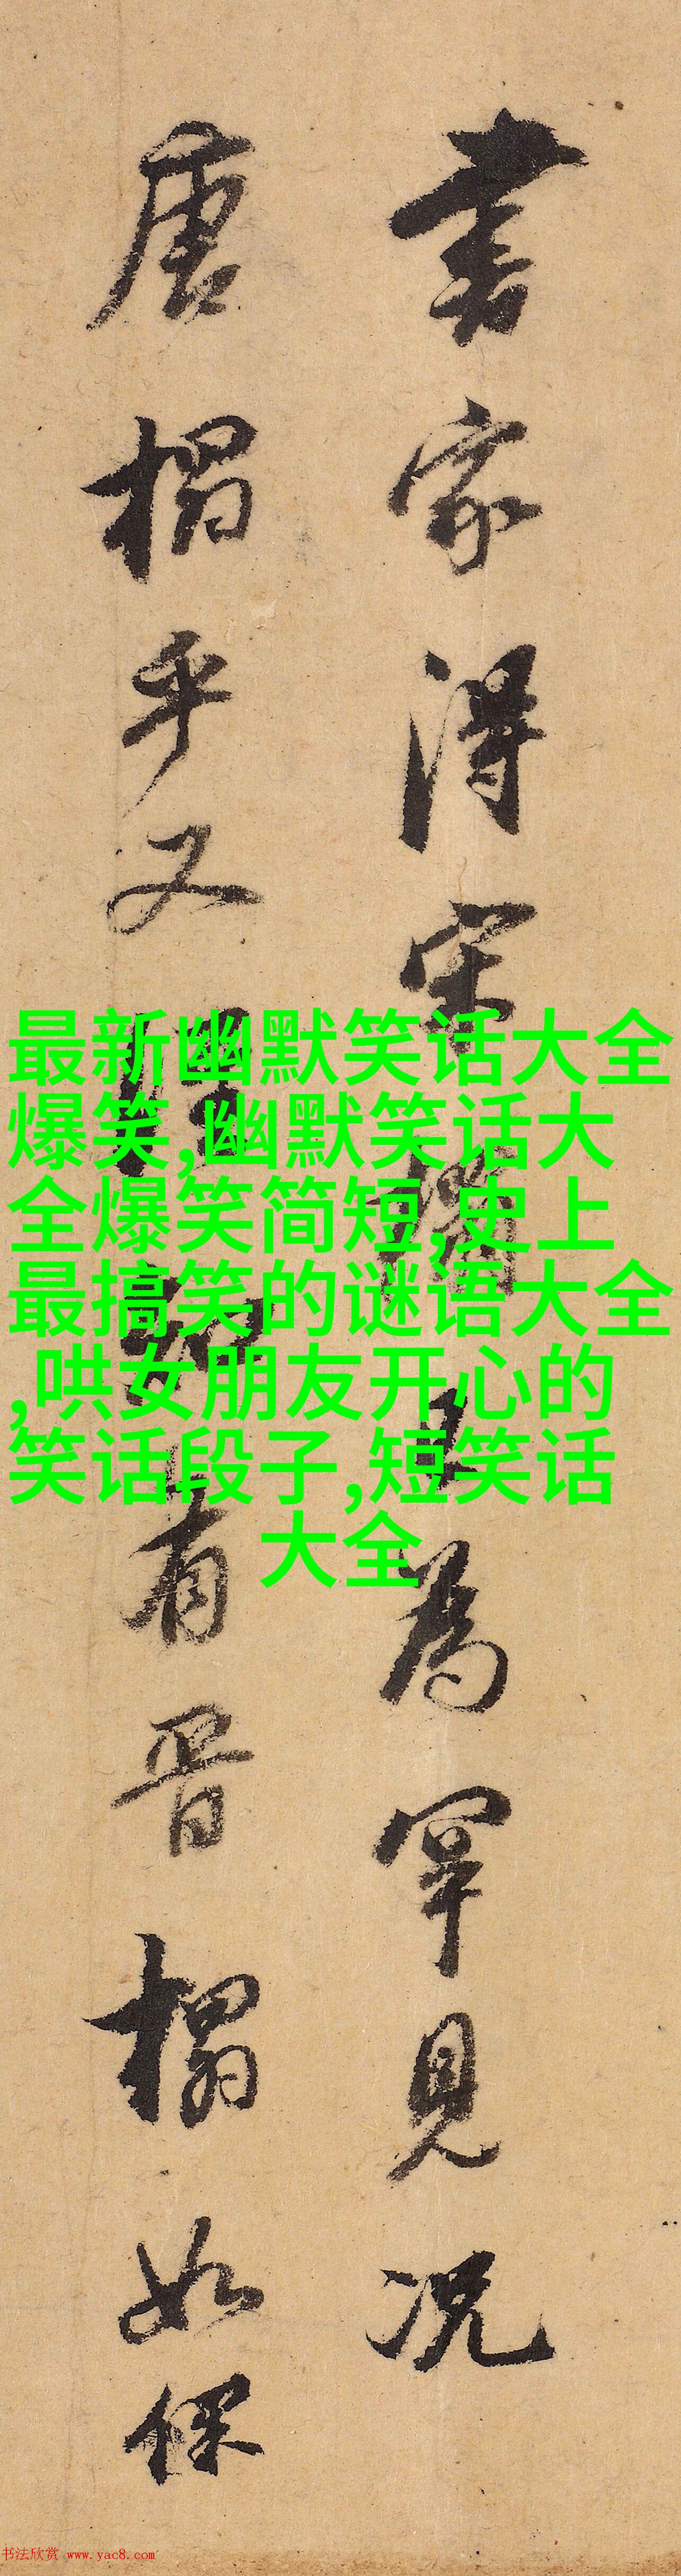 書家得宋搨已為罕見况
唐搨乎又有晋搨如保
最新幽默笑话大全
爆笑,幽默笑话大
全爆笑简短,史上
最搞笑的谜语大全
,哄女朋友开心的
笑话段子,短笑话
大全
书法欣赏 www.yac8.com